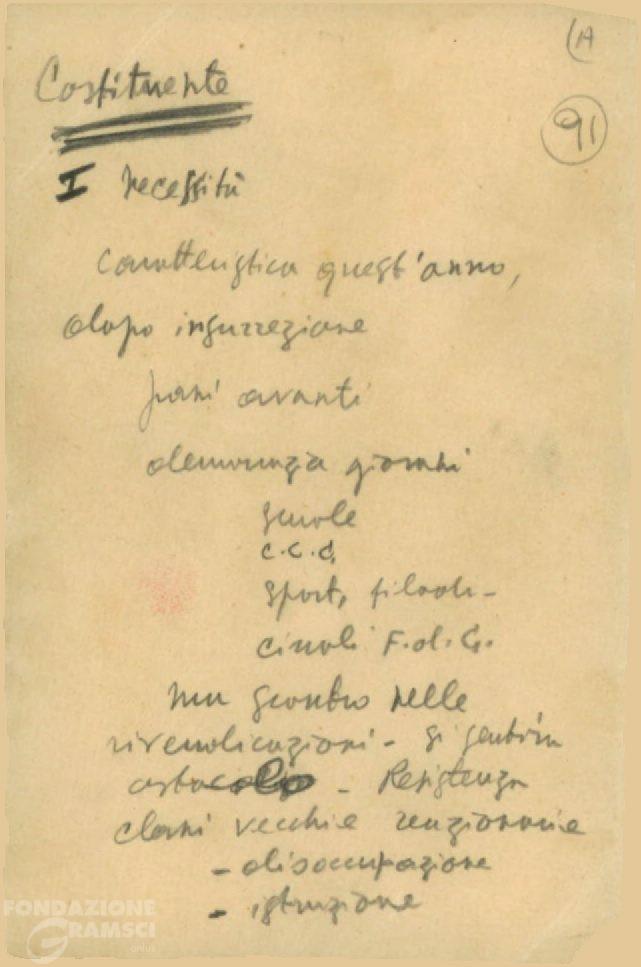 (A
91
Costituente
I necessità
caratteristica quest'anno,
dopo insurrezione
passi avanti
democrazia giovani
scuole
c.c.d.
sport,
circoli F.d.G.
ma scontro nelle
rivendicazioni - si sentiva
ostacolo - Resistenza
classi vecchie reazionarie
- disoccupazione
- istruzione
FONDAZIONE
GRAMSCI
onlus